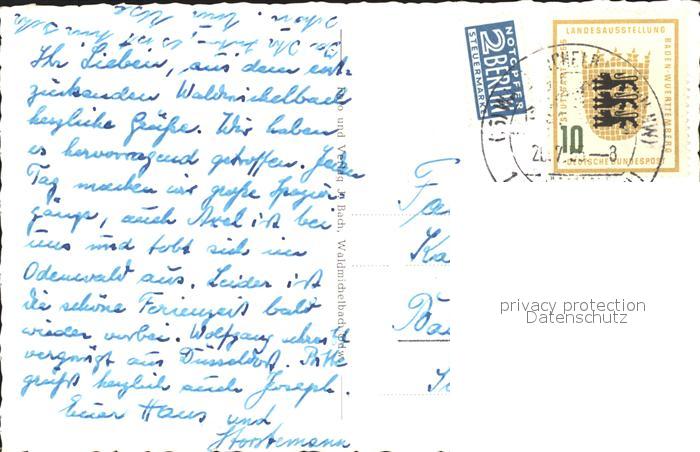 Ihr Lieben, aus dem ent-
zückenden Waldmichelbach
herzliche Grüße. Wir haben
es hervorragend getroffen. Jeden
Tag machen wir große Spazier-
gänge, auch Axel ist bei
uns und tobt sich im
Odenwald aus. Leider ist
die schöne Ferienzeit bald
wieder vorbei. Wolfgang schreibt
vergnügt aus Düsseldorf. Bitte
grüßt herzlich auch Joseph.
Euer Haus und
und Verlag J. Bach, Waldmichelbach
NOTOPFER
2 BERLIN
STEUERMARKE
LANDESAUSSTELLUNG
BADEN-WÜRTTEMBERG
10
DEUTSCHE BUNDESPOST
Fa
Ka
Ba
privacy protection
Datenschutz